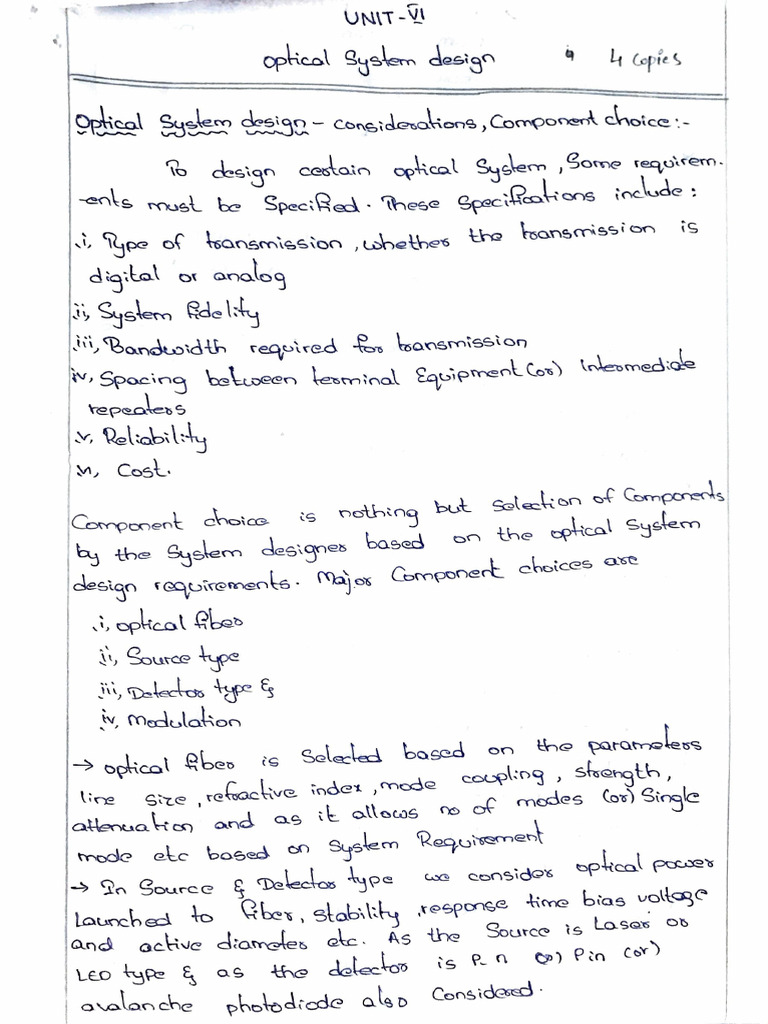 UNIT-VI
Optical System design 4 Copies
Optical System design - considerations, Component choice:-
To design certain optical System, Some requirem-
-ents must be Specified. These Specifications include:
i, Type of transmission, whether the transmission is
digital or analog
ii, System fidelity
iii, Bandwidth required for transmission
iv, Spacing between terminal Equipment (or) intermediate
repeaters
v, Reliability
vi, Cost.
Component choice is nothing but selection of Components
by the System designer based on the optical System
design requirements. Major Component choices are
i, optical fiber
ii, Source type
iii, Detector type &
iv, Modulation
→ optical fiber is Selected based on the parameters
line size, refractive index, mode coupling, strength,
attenuation and as it allows no of modes (or) Single
mode etc based on System Requirement
→ In Source & Detector type we consider optical power
Launched to fiber, stability, response time bias voltage
and active diameter etc. As the Source is Laser or
LED type & as the detector is P-n (or) Pin (or)
avalanche photodiode also Considered.